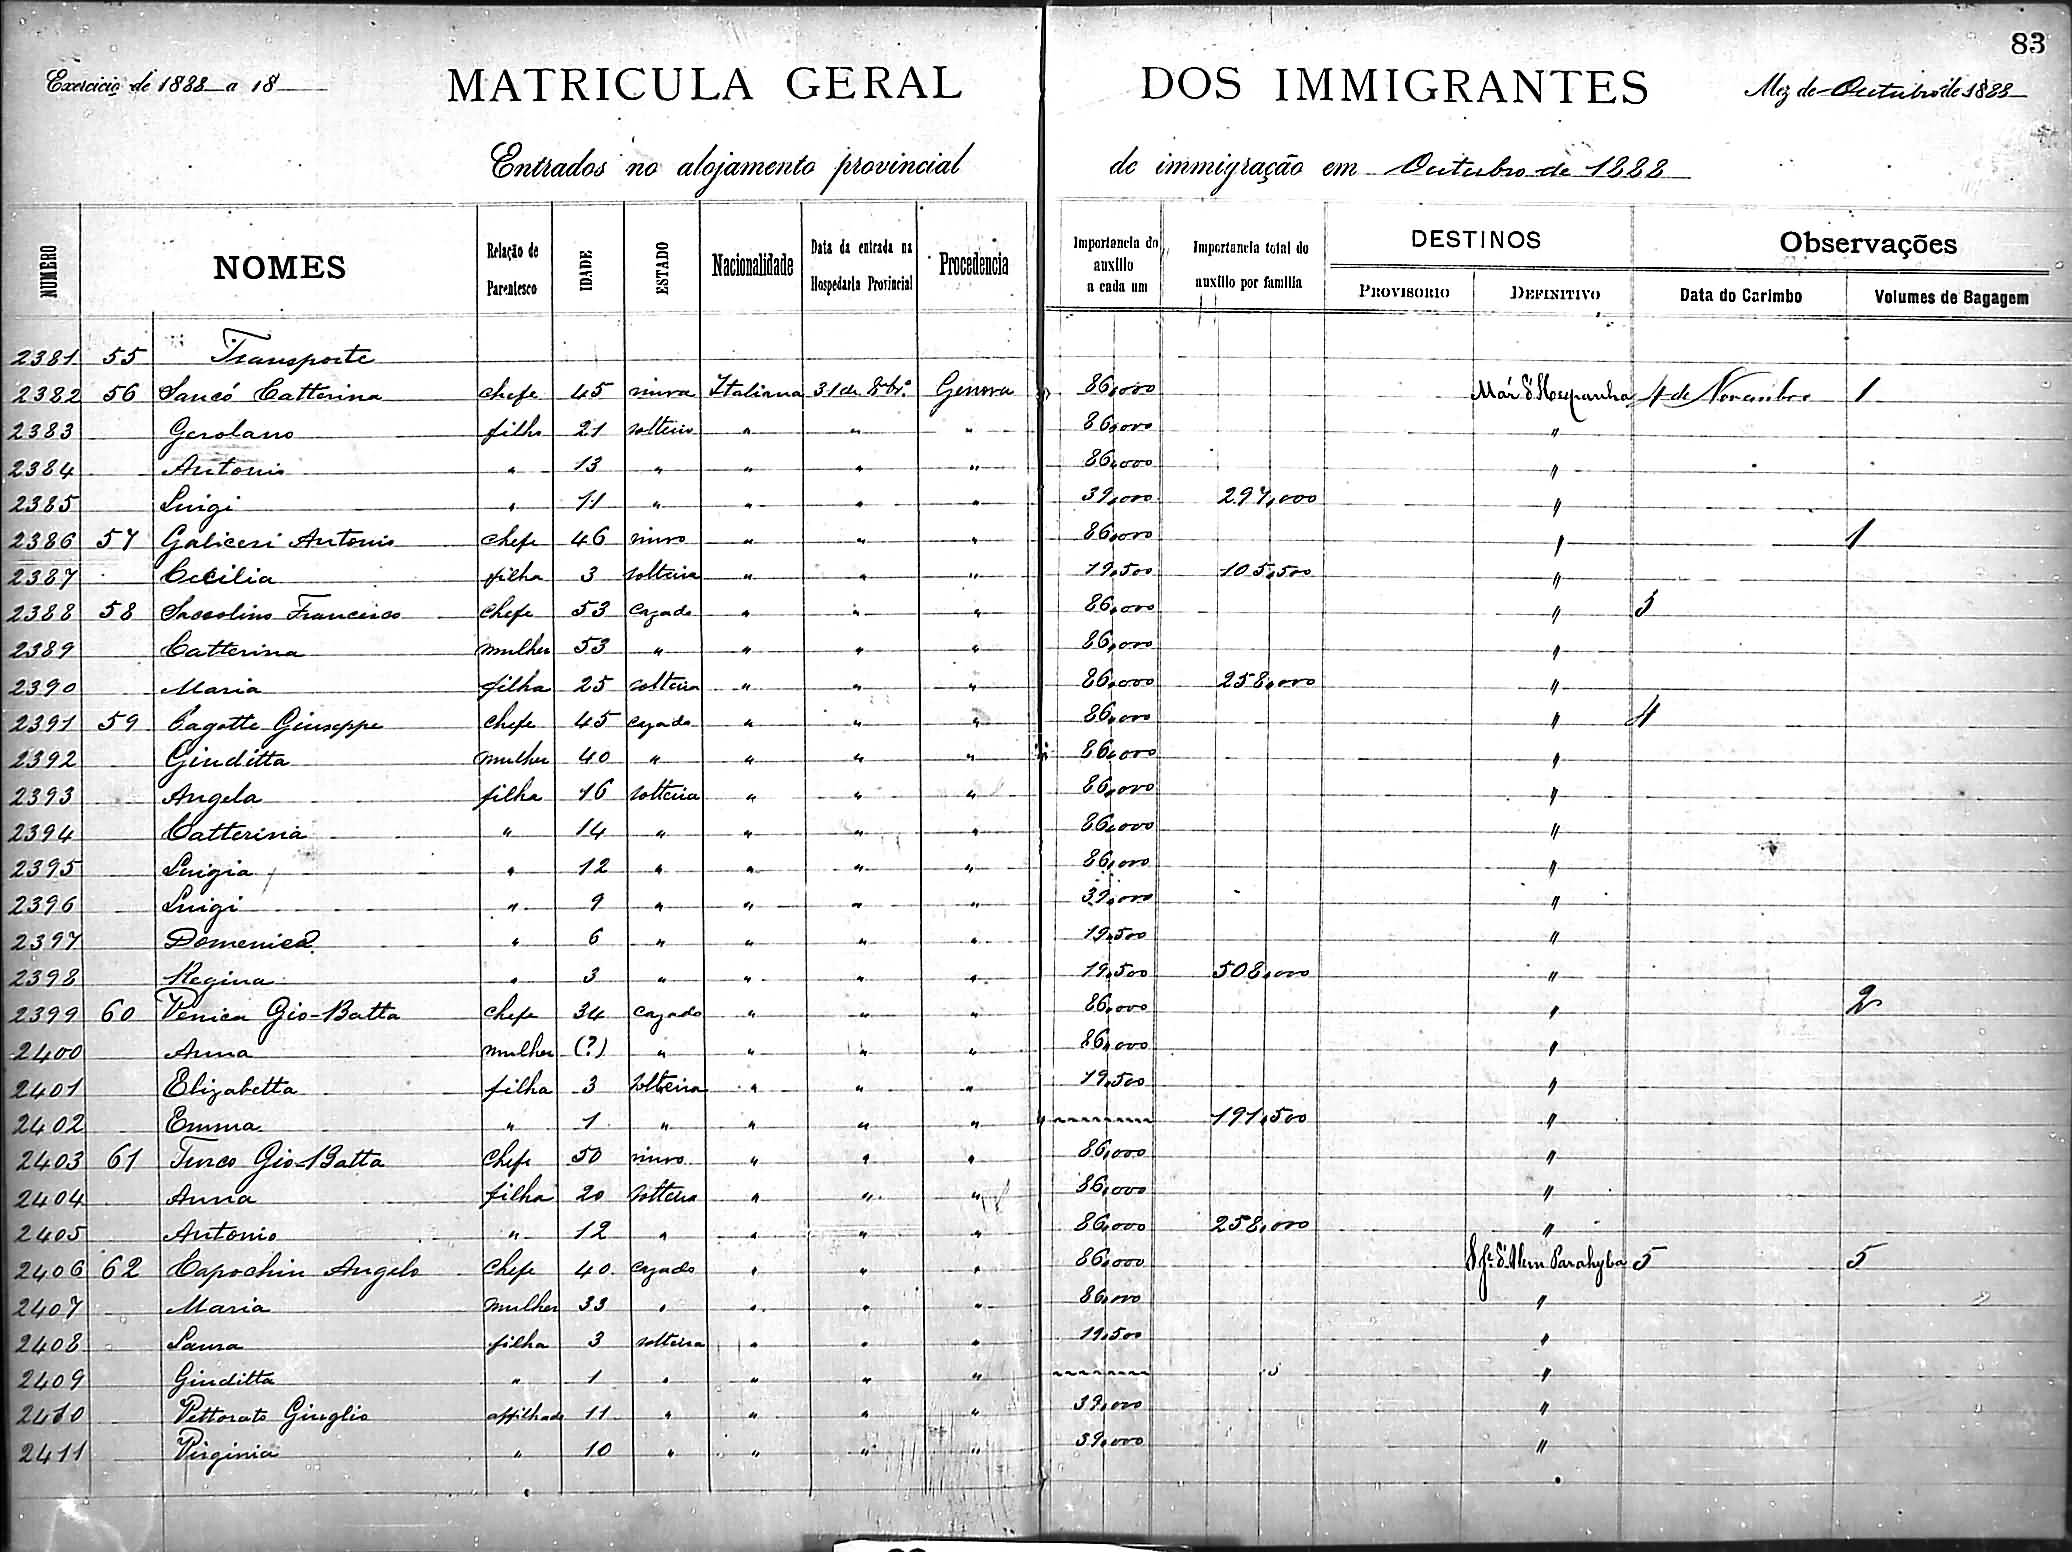 83
Exercicio de 1888 a 18
MATRICULA GERAL DOS IMMIGRANTES
Mez de Outubro de 1888
Entrados no alojamento provincial de immigração em Outubro de 1888
NUMERO NOMES Relação de Parentesco IDADE ESTADO Nacionalidade Data da entrada na Hospedaria Provincial Procedencia Importancia do auxilio a cada um Importancia total do auxilio por familia DESTINOS PROVISORIO DEFINITIVO Observações Data do Carimbo Volumes de Bagagem
2381 55 Transporte
2382 56 Saucó Catterina chefe 45 viuva Italiana 31 de 8br.º Genova 86,000 Mar d'Hespanha 4 de Novembro 1
2383 Gerolano filho 21 solteiro " " " 86,000 "
2384 Antonio " 13 " " " " 86,000 "
2385 Luigi " 11 " " " " 39,000 297,000 "
2386 57 Galiceri Antonio chefe 46 viuvo " " " 86,000 " 1
2387 Cecilia filha 3 solteira " " " 19,500 105,500 "
2388 58 Saccolino Francesco chefe 53 cazado " " " 86,000 " 5
2389 Catterina mulher 53 " " " " 86,000 "
2390 Maria filha 25 solteira " " " 86,000 258,000 "
2391 59 Cagotte Giuseppe chefe 45 cazado " " " 86,000 " 4
2392 Giuditta mulher 40 " " " " 86,000 "
2393 Angela filha 16 solteira " " " 86,000 "
2394 Catterina " 14 " " " " 86,000 "
2395 Luigia " 12 " " " " 86,000 "
2396 Luigi " 9 " " " " 39,000 "
2397 Domenica " 6 " " " " 19,500 "
2398 Regina " 3 " " " " 19,500 508,000 "
2399 60 Venica Gio-Batta chefe 34 cazado " " " 86,000 " 2
2400 Anna mulher (?) " " " " 86,000 "
2401 Elizabetta filha 3 solteira " " " 19,500 "
2402 Emma " 1 " " " " 191,500 "
2403 61 Turco Gio-Batta chefe 50 viuvo " " " 86,000 "
2404 Anna filha 20 solteira " " " 86,000 "
2405 Antonio " 12 " " " " 86,000 258,000 "
2406 62 Capochin Angelo chefe 40 cazado " " " 86,000 S Je. d'Alem Parahyba 5 5
2407 Maria mulher 33 " " " " 86,000 "
2408 Laura filha 3 solteira " " " 19,500 "
2409 Giuditta " 1 " " " " "
2410 Pettorato Giuglio affilhado 11 " " " " 39,000 "
2411 Virginia " 10 " " " " 39,000 "